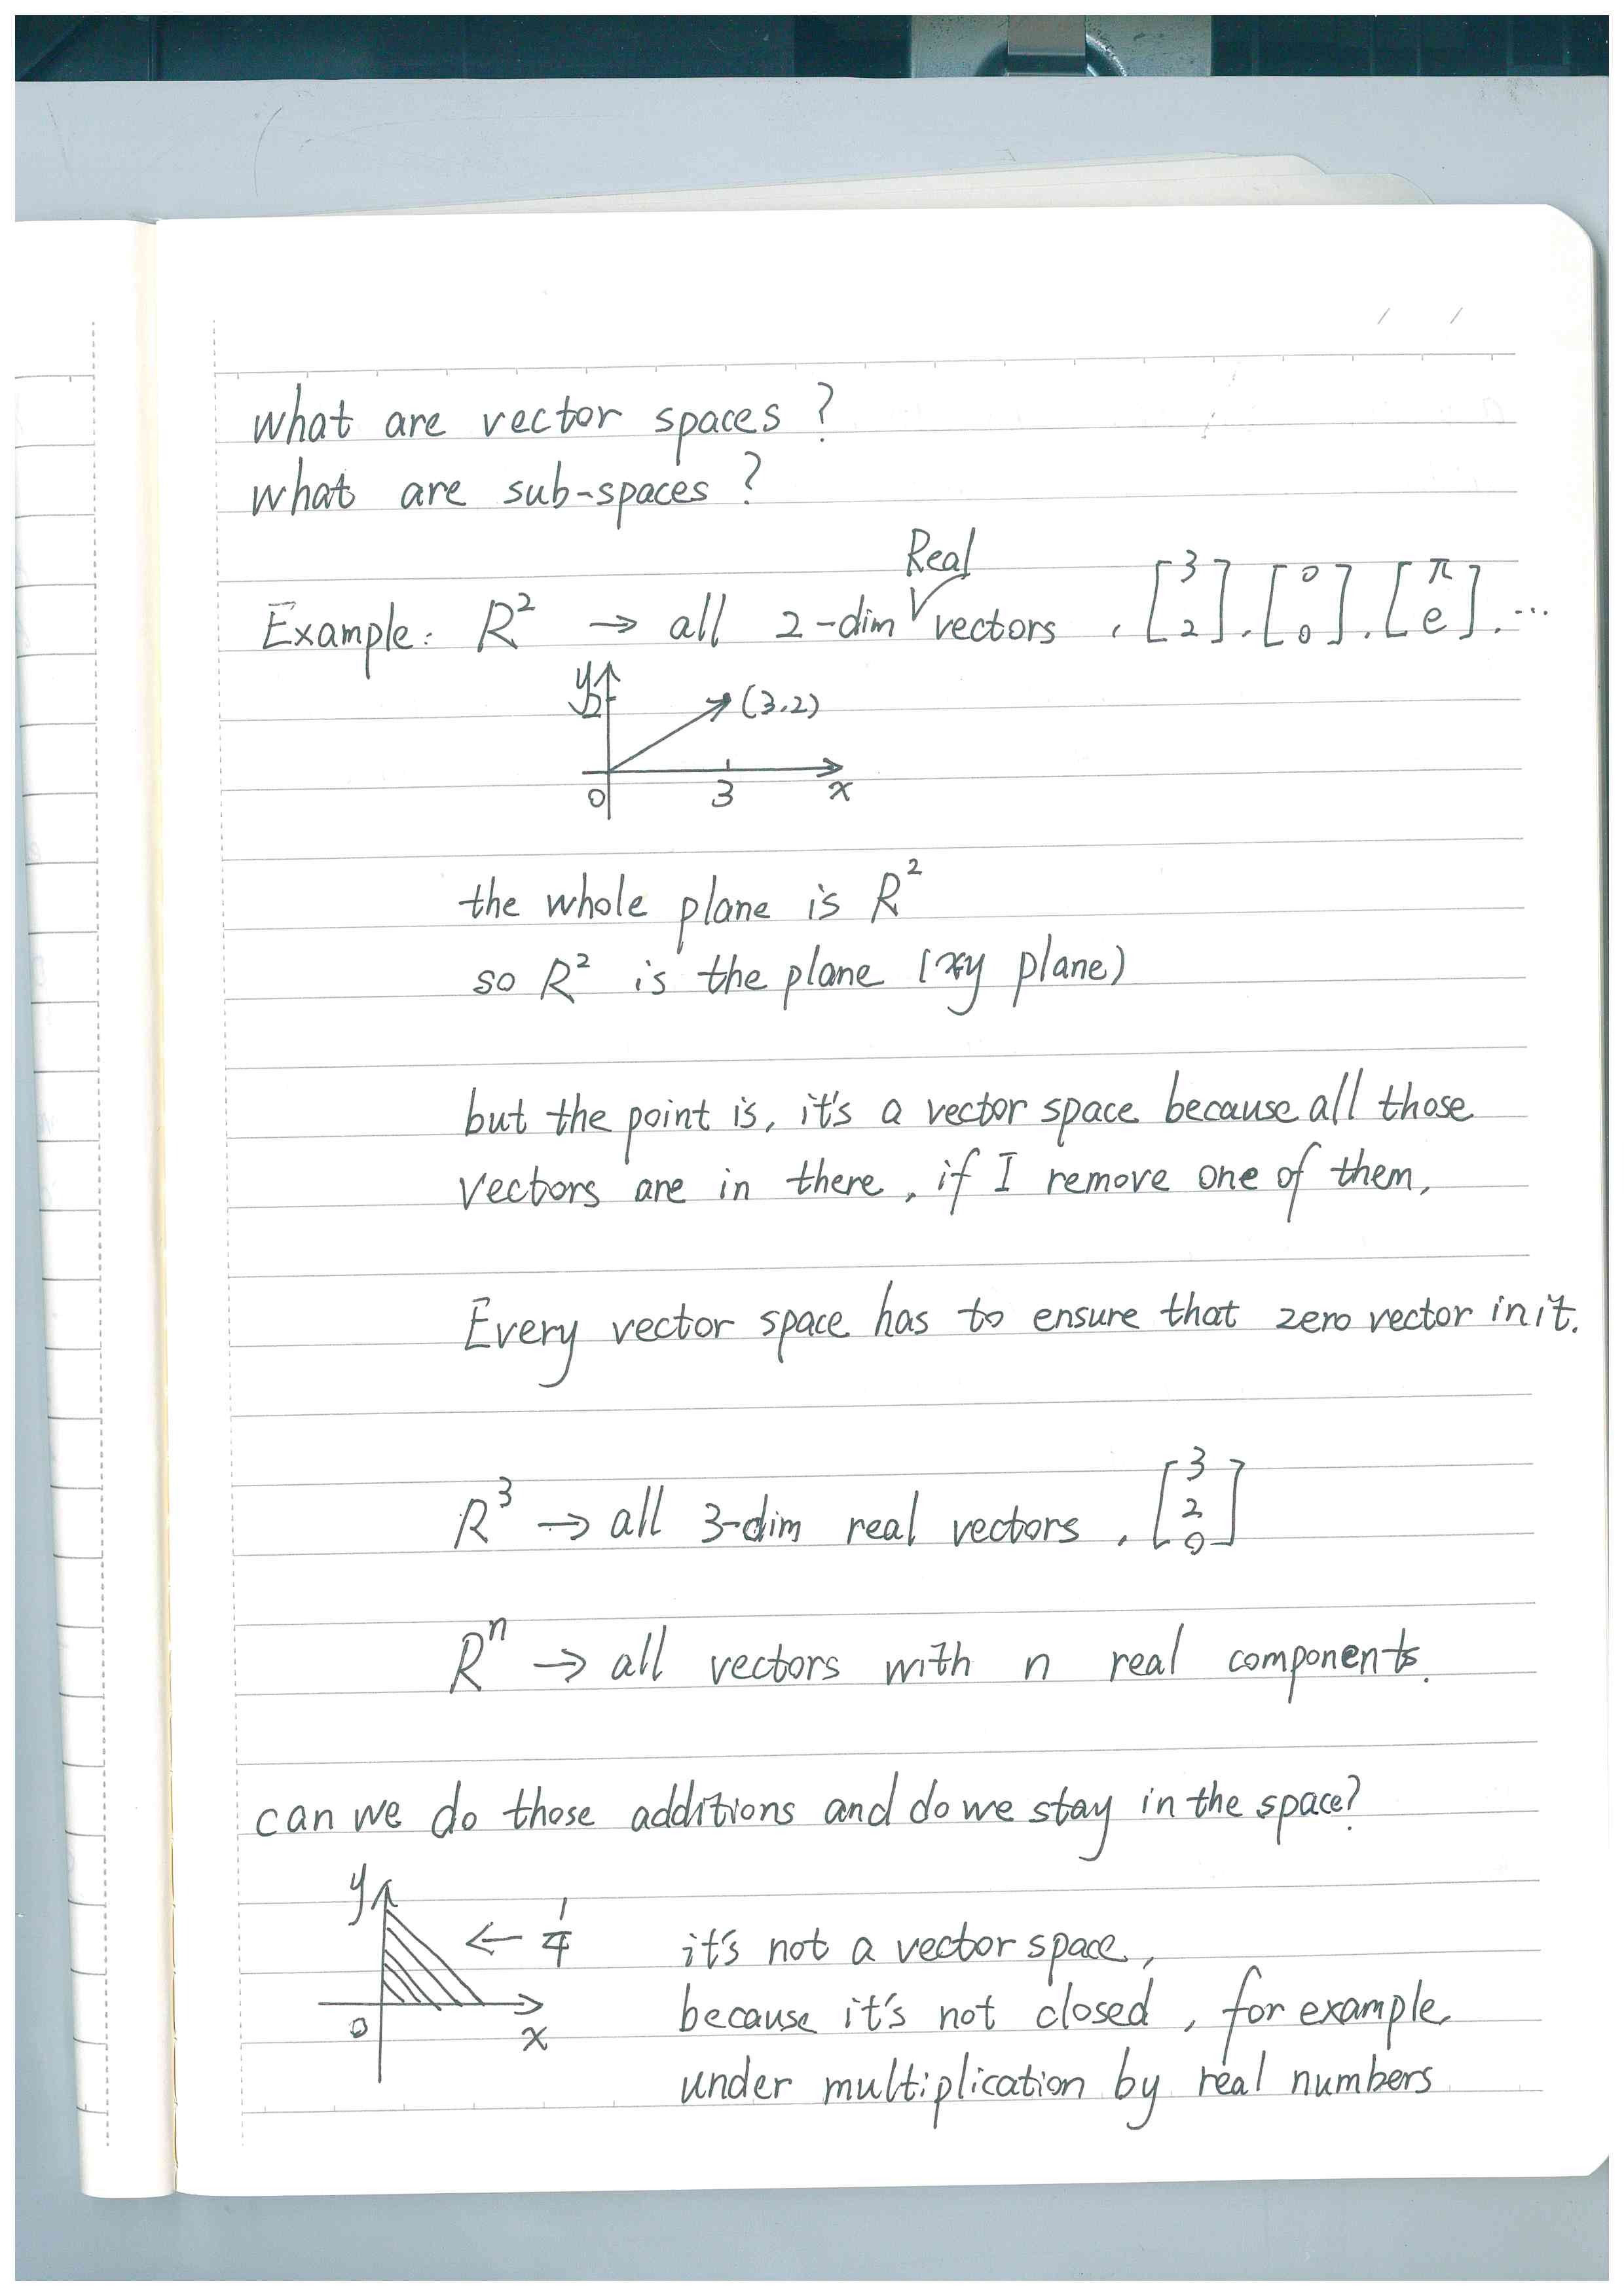 what are vector spaces ?
what are sub-spaces ?
Real
Example: R² → all 2-dim vectors , [3 2], [0 0], [π e], ...
y
2 (3,2)
0 3 x
the whole plane is R²
so R² is the plane (xy plane)
but the point is, it's a vector space because all those
vectors are in there, if I remove one of them,
Every vector space has to ensure that zero vector in it.
R³ → all 3-dim real vectors , [3 2 0]
Rⁿ → all vectors with n real components.
can we do those additions and do we stay in the space?
y
← 1/4 it's not a vector space,
0 x because it's not closed, for example
under multiplication by real numbers